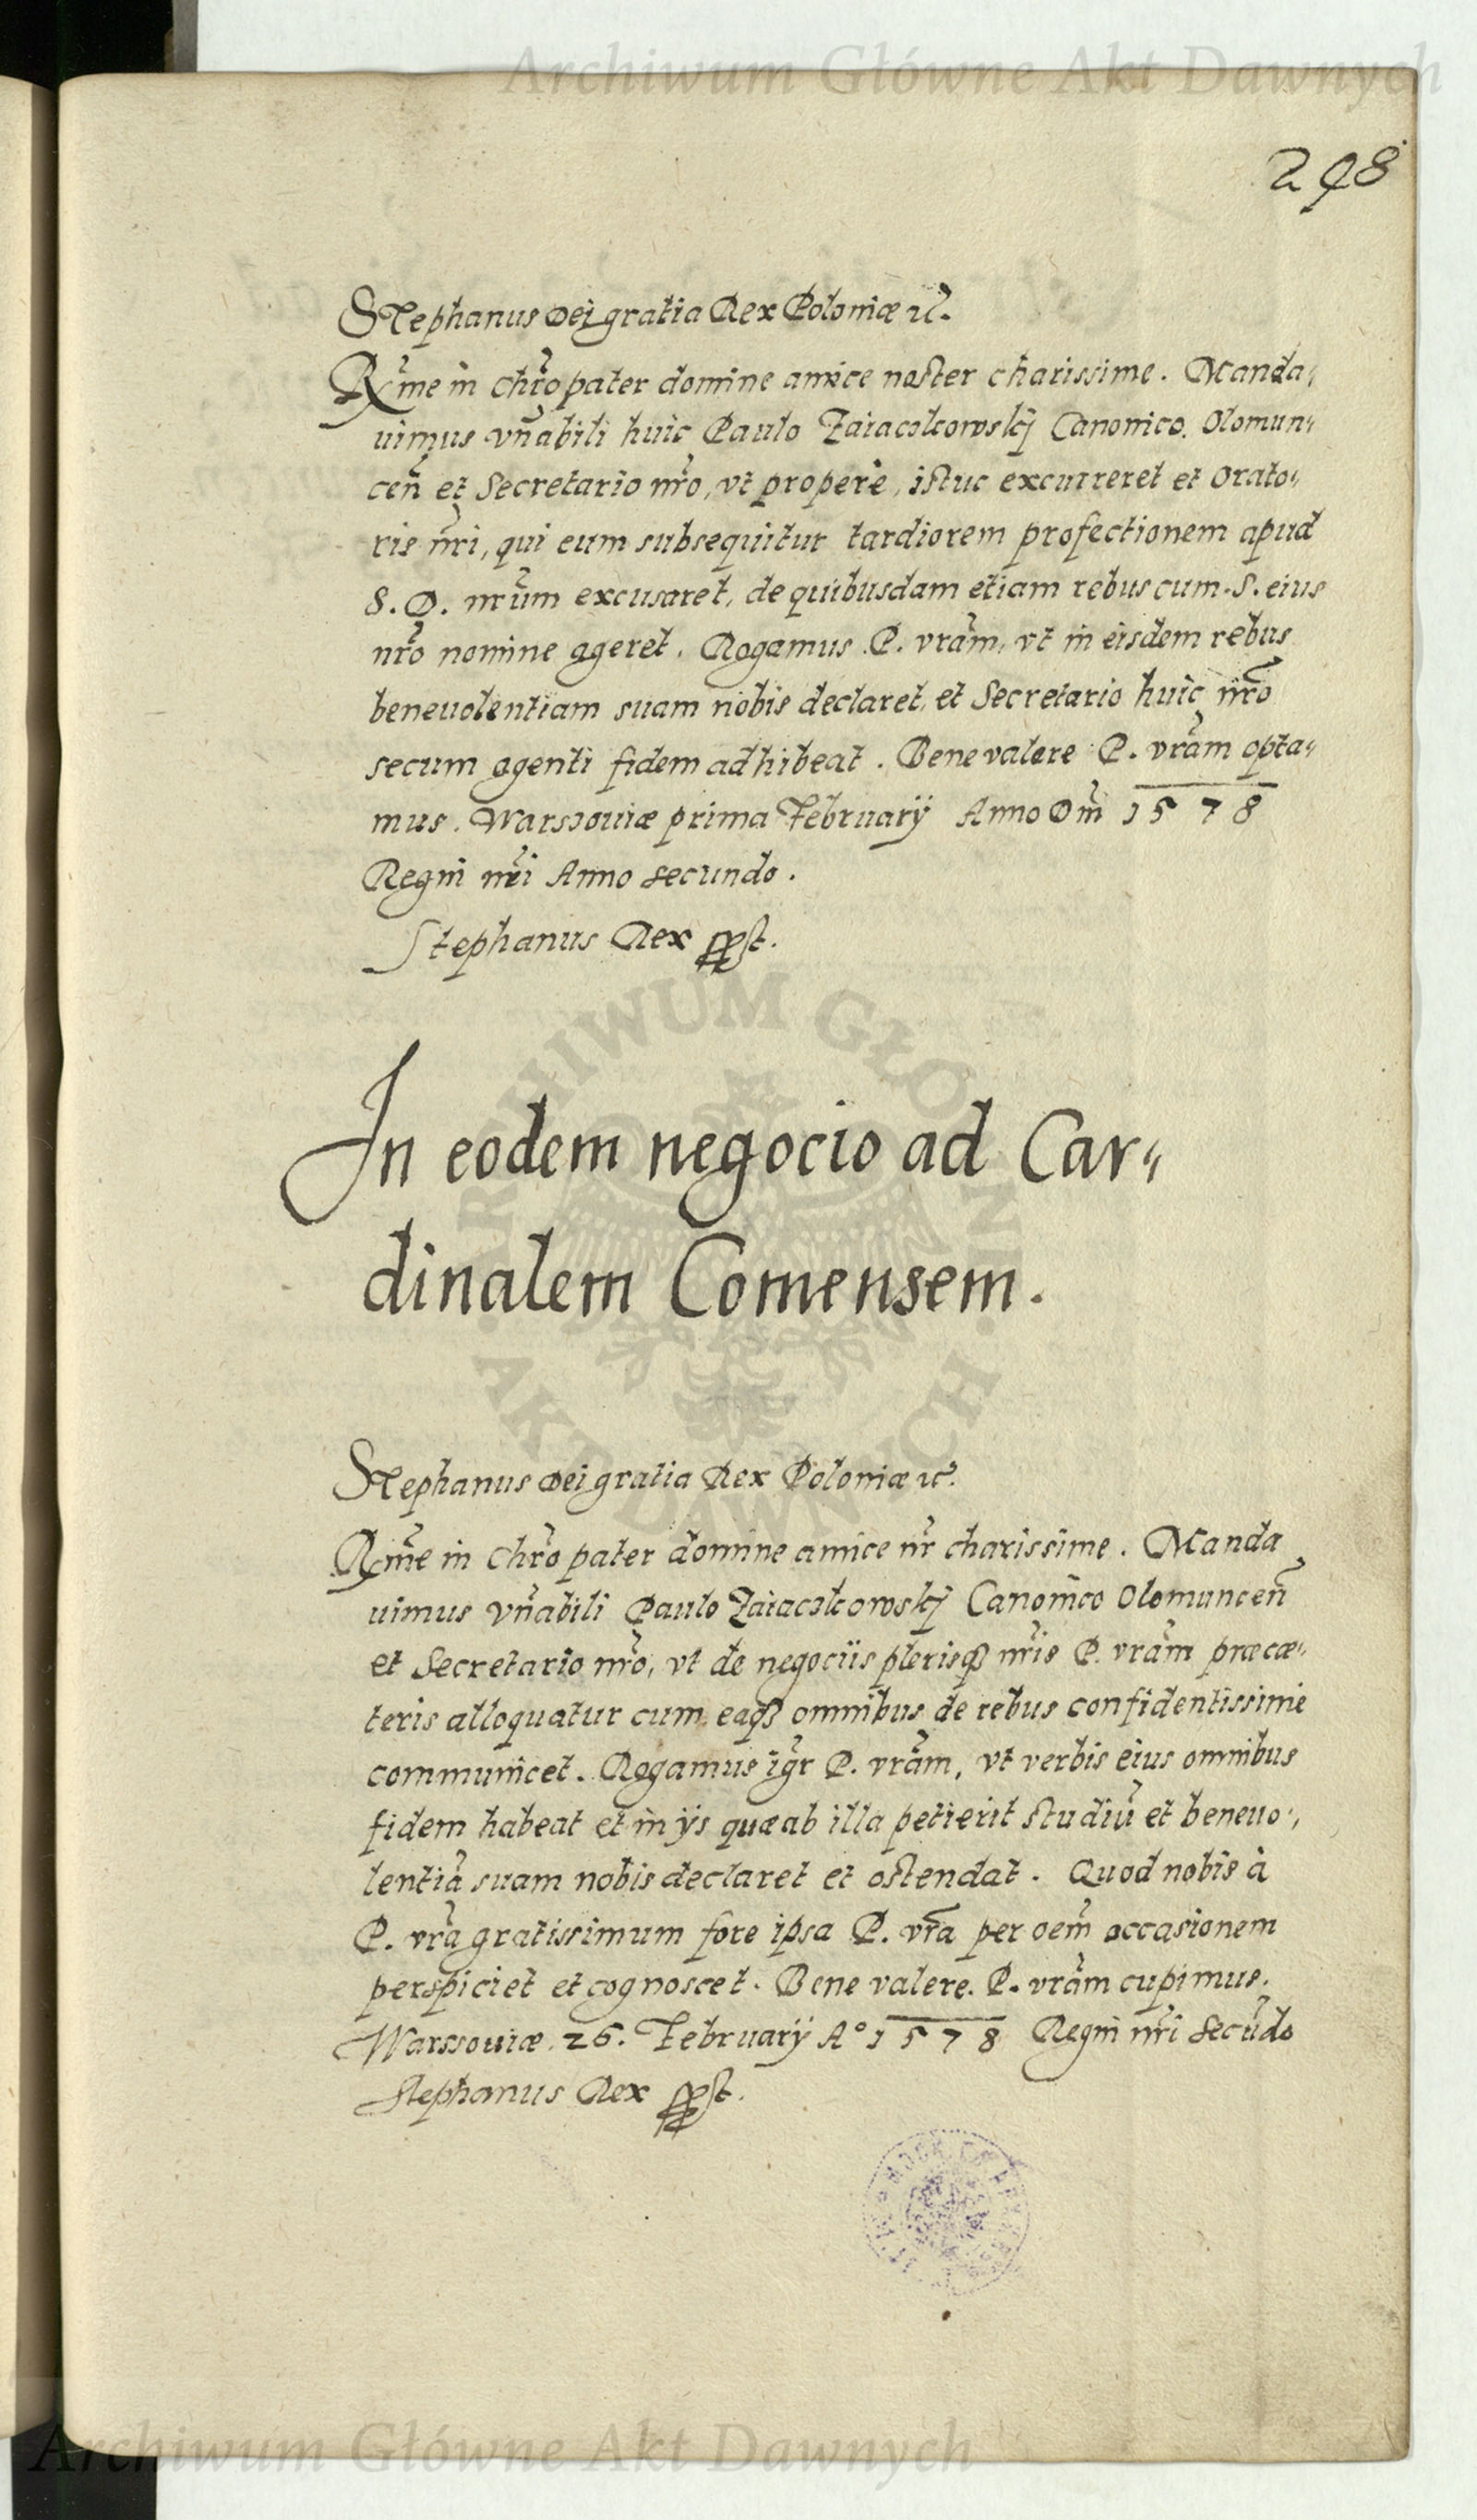 Archiwum Główne Akt Dawnych
248
Stephanus Dei gratia Rex Poloniæ ꝛc.
Rx̃me in Chr̃o pater domine amice noster charissime. Manda„
uimus vñabili huic Paulo Zaiaczkowskj Canonico. Olomun„
ceñ et Secretario nr̃o, vt propere, istuc excurreret et Orato„
ris nr̃i, qui eum subsequitur tardiorem profectionem apud
S. D. nrũm excusaret, de quibusdam etiam rebus cum. S. eius
nr̃o nomine ageret. Rogamus P. vrãm, vt in eisdem rebus
beneuolentiam suam nobis declaret, et Secretario huic nr̃o
secum agenti fidem adhibeat. Bene valere P. vrãm opta„
mus. Warssouiæ prima Februarÿ Anno Dm̃ 1578
Regni nr̃i Anno secundo.
Stephanus Rex sspt.
ARCHIWUM GŁÓWNE
In eodem negocio ad Car„
dinalem Comensem.
AKT DAWNYCH
Stephanus Dei gratia Rex Poloniæ ꝛc.
Rx̃me in Chr̃o pater domine amice nr̃ charissime. Manda
uimus vñabili Paulo Zaiaczkowskj Canonico Olomunceñ
et Secretario nr̃o, vt de negociis plerisqꝫ nr̃is P. vrãm præcæ„
teris alloquatur cum eaqꝫ omnibus de rebus confidentissime
communicet. Rogamus igr̃ P. vrãm, vt verbis eius omnibus
fidem habeat et in ÿs quæ ab illa petierit studiũ et beneuo„
lentiã suam nobis declaret et ostendat. Quod nobis à
P. vrã gratissimum fore ipsa P. vrã per oem̃ occasionem
perspiciet et cognoscet. Bene valere. P. vrãm cupimus.
Warssouiæ. 26. Februarÿ A° 1578 Regni nr̃i secũdo
Stephanus Rex sspt.
Archiwum Główne Akt Dawnych